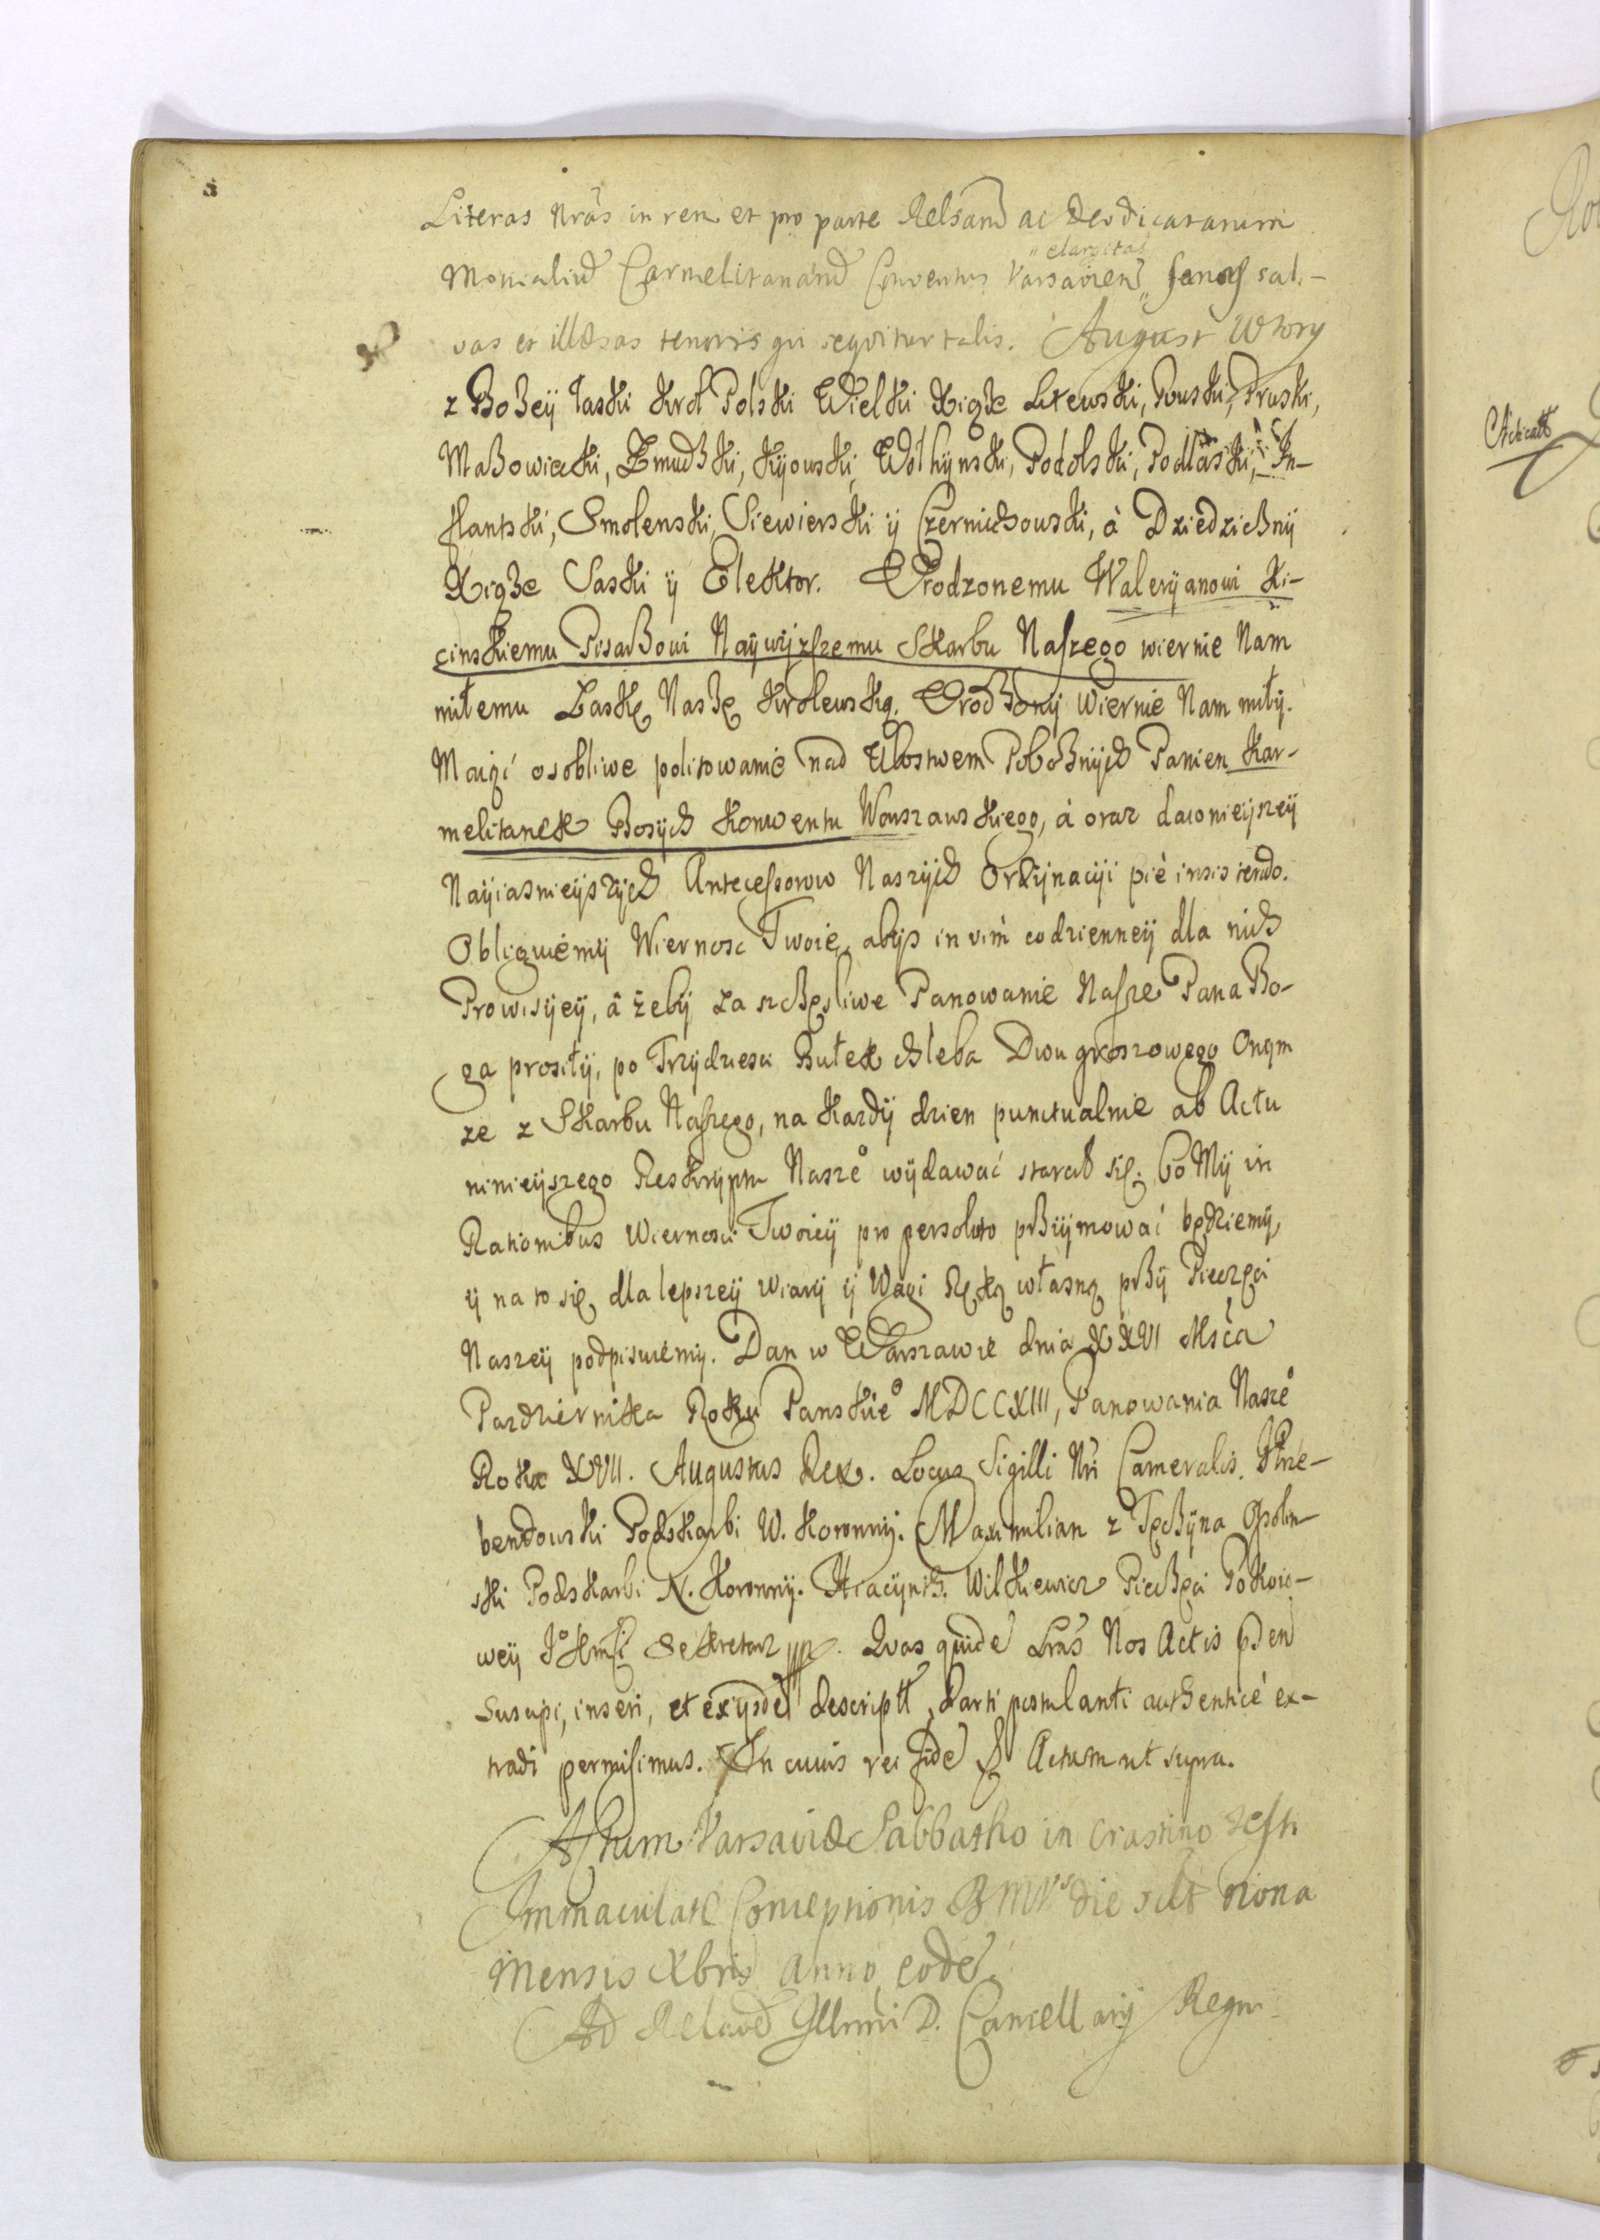 Literas Nrãs in rem et pro parte Relsarũ ac Deo dicatarum
elargitas
Monialiũ Carmelitanarũ Conventus Varsavien sanas sal-
vas et illæsas tenoris qui sequitur talis. August Wtory
z Bozey łaski Krol Polski Wielki Xiąze Litewski, Ruski, Pruski,
Mazowiecki, Zmudzki, Kyowski, Wołhynski, Podolski, Podlaski, In-
flantski, Smolenski, Siewierski y Czernichowski, à Dziedziczny
Xiąze Saski y Elektor. Urodzonemu Waleryanowi Ki-
cinskiemu Pisarzowi Naywyzszemu Skarbu Naszego wiernie Nam
miłemu Łaskę Naszę Krolewską. Urodzony Wiernie Nam miły.
Maiąc osobliwe politowanie nad Ubostwem Poboznych Panien Kar-
melitanek Bosych Konwentu Warszawskiego, à oraz dawnieyszey
Nayiasnieyszych Antecessorow Naszych Ordynacyi piè insistendo.
Obliguiemy Wiernosc Twoię, abys in vim codzienney dla nich
Prowisyey, â żeby za szczęsliwe Panowanie Nasze Pana Bo-
ga prosiły, po Trzydziesci Bułek chleba Dwu groszowego Onym
ze z Skarbu Naszego, na kazdy dzien punctualnie ab Actu
ninieyszego Reskryptu Naszeº wydawać starał się. Co My in
Rationibus Wiernosci Twoiey pro persoluto przyimować będziemy,
y na to się dla lepszey wiary y Wagi Ręką własną przy Pieczęci
Naszey podpisuiemy. Dan w Warszawie dnia XXVI Msca
Pazdziernika Roku Panskieº MDCCXIII, Panowania Naszeº
Roku XVII. Augustus Rex. Locus Sigilli Nri Cameralis. Prze-
bendowski Podskarbi W. Koronny. Maximilian z Tęczyna Ossolin-
ski Podskarbi N. Koronny. Hiacynth Wilkiewicz Pieczęci Pokoio-
wey JºKMsci Sekretarz mp. Quas quidè Lrás Nos Actis pden
suscipi, inseri, et ex ijsdè descriptt, parti postulanti authenticè ex-
tradi permisimus. In cuius rei fidè Actum ut supra.
Actum Varsaviæ Sabbatho in crastino festi
Immaculatæ Conceptionis BMVs die scit nona
Mensis Xbris Anno eodè.
Ad Relaõ Illmi D. Cancellarij Regni